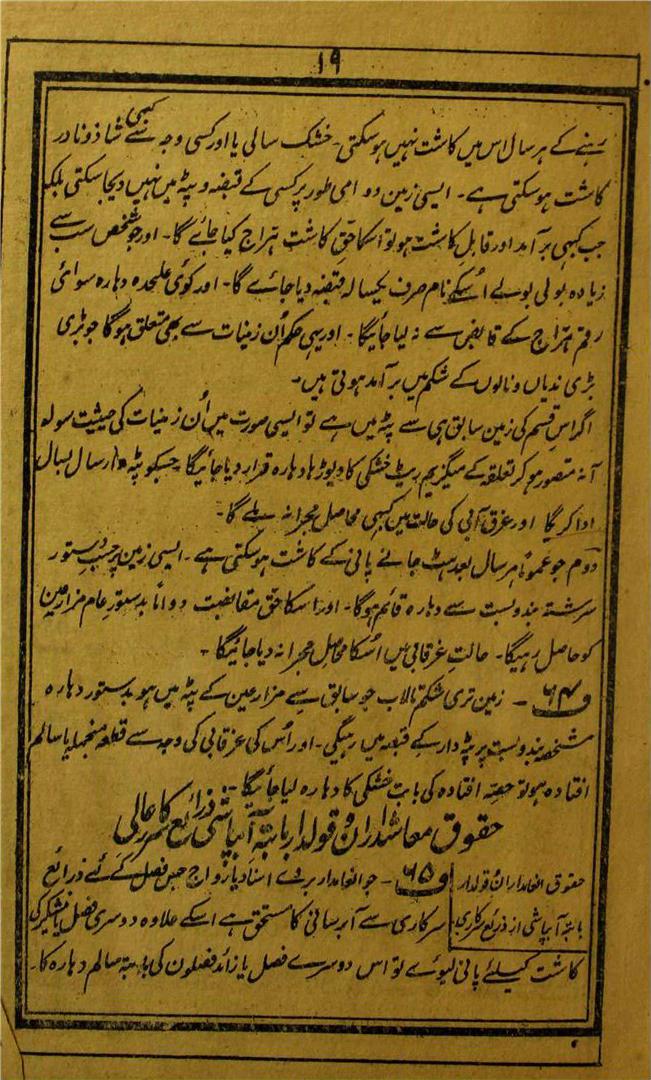 ۱۹
رہنے کے ہر سال اس میں کاشت نہیں ہوسکتی۔ خشک سالی یا اور کسی وجہ سے کبھی شاذ و نادر
کاشت ہوسکتی ہے۔ ایسی زمین دوامی طور پر کسی کے قبضہ و پٹہ میں نہیں دیجاسکتی بلکہ
جب کبھی برآمد اور قابل کاشت ہو تو اسکا حق کاشت ہراج کیا جائے گا۔ اور جو شخص سب سے
زیادہ بولی بولے اُسکے نام صرف یکسالہ قبضہ دیا جائے گا۔ اور کوئی علیحدہ دہارہ سوائی
رقم ہراج کے قابض سے نہ لیا جائیگا۔ اور یہی حکم اُن زمینات سے بھی متعلق ہوگا جو بڑی
بڑی ندیاں و نالوں کے شکم میں برآمد ہوتی ہیں۔
اگر اس قسم کی زمین سابق ہی سے پٹہ میں ہے تو ایسی صورت میں اُن زمینات کی حیثیت سولہ
آنہ متصور ہوکر تعلقہ کے میگزیم ریٹ خشکی کا دیوڑہا دہارہ قرار دیا جائیگا جسکو پٹہ دار سال بسال
ادا کریگا اور غرق آبی کی حالت میں کبھی محاصل مجرا نہ ملے گا۔
دوم جو عموماً ہر سال بعد ہٹ جانے پانی کے کاشت ہوسکتی ہے۔ ایسی زمین پر حسب دستور
سرشتہ بندوبست سے دہارہ قائم ہوگا۔ اور اسکا حق مقابضت دواماً بدستور عام مزارعین
کو حاصل رہیگا۔ حالت غرقابی میں اُسکا محاصل مجرا نہ دیا جائیگا۔
ف۶۴ ۔ زمین تری شکم تالاب جو سابق سے مزارعین کے پٹہ میں ہو بدستور دہارہ
مشخصہ بندوبست پر پٹہ دار کے قبضہ میں رہیگی۔ اور اُس کی غرقابی کی وجہ سے قطعہ منجملہ یا سالم
افتادہ ہو تو حصہ افتادہ کی بابت خشکی کا دہارہ لیا جائیگا۔
حقوق معاشداران و قولدار بابتہ آبپاشی ذرائع سرکار عالی
حقوق انعامداران و قولدار
بابتہ آبپاشی از ذرائع سرکاری
ف۶۵ ۔ جو انعامدار بروے اسناد یا رواج جس فصل کے لئے ذرائع
سرکاری سے آبرسانی کا مستحق ہے اسکے علاوہ دوسری فصل یا نیشکر کی
کاشت کیلئے پانی لیوے تو اس دوسرے فصل یا زائد فصلون کی بابتہ سالم دہارہ کا۔